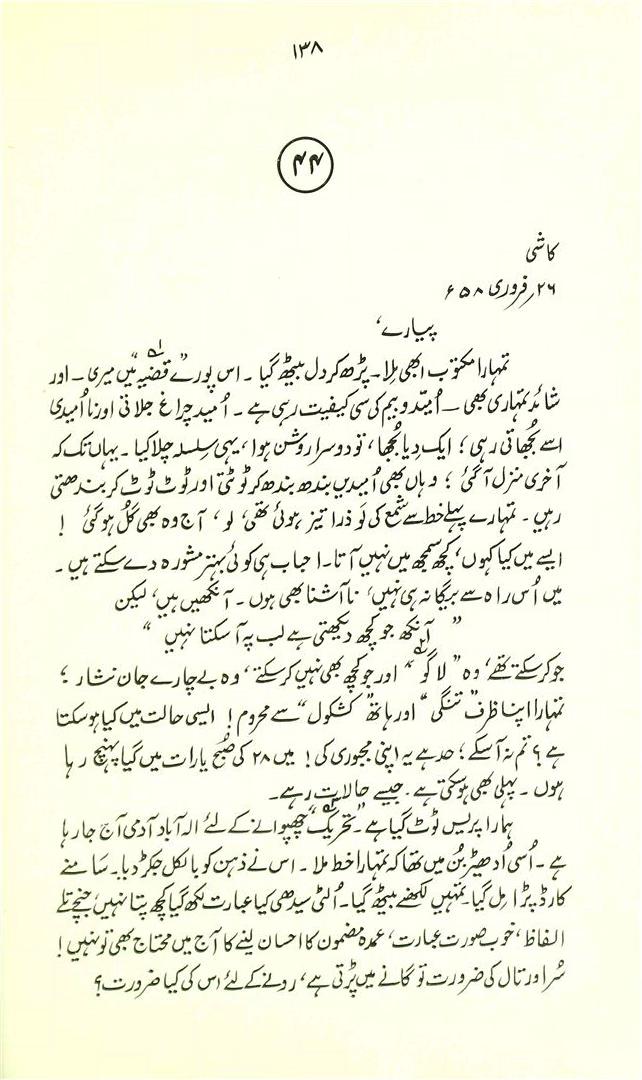 ۱۳۸
۴۴
کاشی
۲۶؍ فروری ۵۸ ء
پیارے،
تمہارا مکتوب ابھی ملا۔ پڑھ کر دل بیٹھ گیا ۔ اس پورے "قضیہ" میں میری ۔ اور
شائد تمہاری بھی ۔ اُمید و بیم کی سی کیفیت رہی ہے ۔ اُمید چراغ جلاتی اور نا اُمیدی
اسے بُجھاتی رہی ؛ ایک دیا بُجھا ، تو دوسرا روشن ہوا ، یہی سِلسلہ چلا کیا ۔ یہاں تک کہ
آخری منزل آ گئی ؛ وہاں بھی اُمیدیں بندھ بندھ کر ٹوٹتی اور ٹوٹ ٹوٹ کر بندھتی
رہیں ۔ تمہارے پہلے خط سے شمع کی لَو ذرا تیز ہوئی تھی، لو ، آج وہ بھی گُل ہو گئی !
ایسے میں کیا کہوں، کچھ سمجھ میں نہیں آتا۔ احباب ہی کوئی بہتر مشورہ دے سکتے ہیں ۔
میں اُس راہ سے بیگانہ ہی نہیں، نا آشنا بھی ہوں ۔ آنکھیں ہیں، لیکن
" آنکھ جو کچھ دیکھتی ہے لب پہ آ سکتا نہیں "
جو کر سکتے تھے، وہ "لاگو" اور جو کچھ بھی نہیں کر سکتے، وہ بے چارے جان نثار ؛
تمہارا اپنا ظرف "تنگی" اور ہاتھ "کشکول" سے محروم ! ایسی حالت میں کیا ہو سکتا
ہے ؟ تم نہ آ سکے ؛ حد ہے یہ اپنی مجبوری کی ! میں ۲۸ کی صُبح یا رات میں گیا پہنچ رہا
ہوں ۔ پہلی بھی ہو سکتی ہے ۔ جیسے حالات رہے ۔
ہمارا پریس ٹوٹ گیا ہے ۔ "تحریک" چھپوانے کے لئے الہ آباد آدمی آج جا رہا
ہے ۔ اُسی اُدھیڑ بُن میں تھا کہ تمہارا خط ملا ۔ اس نے ذہن کو بالکل جکڑ دیا۔ سامنے
کارڈ پڑا مِل گیا۔ تمہیں لکھنے بیٹھ گیا۔ اُلٹی سیدھی کیا عبارت لکھ گیا کچھ پتا نہیں؛ جنچے تلے
الفاظ ، خوب صورت عبارت ، عمدہ مضمون کا احسان لینے کا آج میں محتاج بھی تو نہیں !
سُر اور تال کی ضرورت تو گانے میں پڑتی ہے ، رونے کے لئے اس کی کیا ضرورت ؟